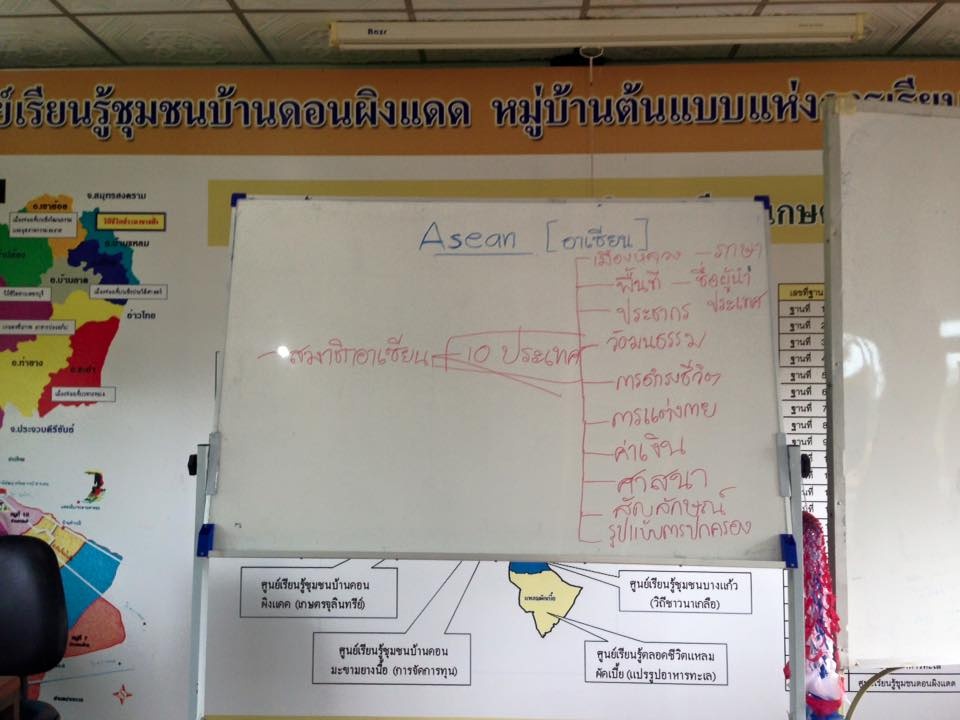 ย์เรียนรู้ชุมชนบ้านดอนผิงแดด หมู่บ้านต้นแบบแห่งการเรียน
จ.สมุทรสงคราม
อ.เขาย้อย
อ.บ้านแหลม
อ.บ้านลาด
อ่าวไทย
อ.ท่ายาง
อ.ชะอำ
จ.ประจวบคีรีขันธ์
Asean [อาเซียน]
เมืองหลวง – ภาษา
พื้นที่ – ชื่อผู้นำ
ประชากร ประเทศ
วัฒนธรรม
– สมาชิกอาเซียน – 10 ประเทศ
การดำรงชีวิต
การแต่งกาย
ค่าเงิน
ศาสนา
สัญลักษณ์
รูปแบบการปกครอง
เลขที่ฐาน
ฐานที่ 1
ฐานที่ 2
ฐานที่ 3
ฐานที่ 4
ฐานที่ 5
ฐานที่ 6
ฐานที่ 7
ฐานที่ 8
ศูนย์เรียนรู้ชุมชนบ้านดอน
ผิงแดด (เกษตรจุลินทรีย์)
ศูนย์เรียนรู้ชุมชนบางแก้ว
(วิถีชาวนาเกลือ)
แหลมผักเบี้ย
ศูนย์เรียนรู้ชุมชนบ้านดอน
มะขามยางนื้อ (การจัดการทุน)
ศูนย์เรียนรู้ตลอดชีวิตแหลม
ผักเบี้ย (แปรรูปอาหารทะเล)
ศูนย์เรียนรู้ชุมชนดอนผิงแดด